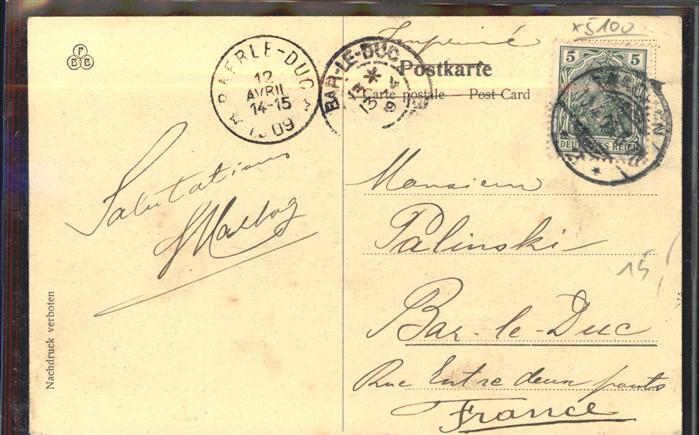 x5100
Imprimé
Postkarte
Carte postale — Post Card
BAERLE-DUC
12
AVRIL
14-15
1909
BAR-LE-DUC
5 5
DEUTSCHES REICH
Salutations
Monsieur
Palinski
15
Bar-le-Duc
Rue Entre deux ponts
France
Nachdruck verboten